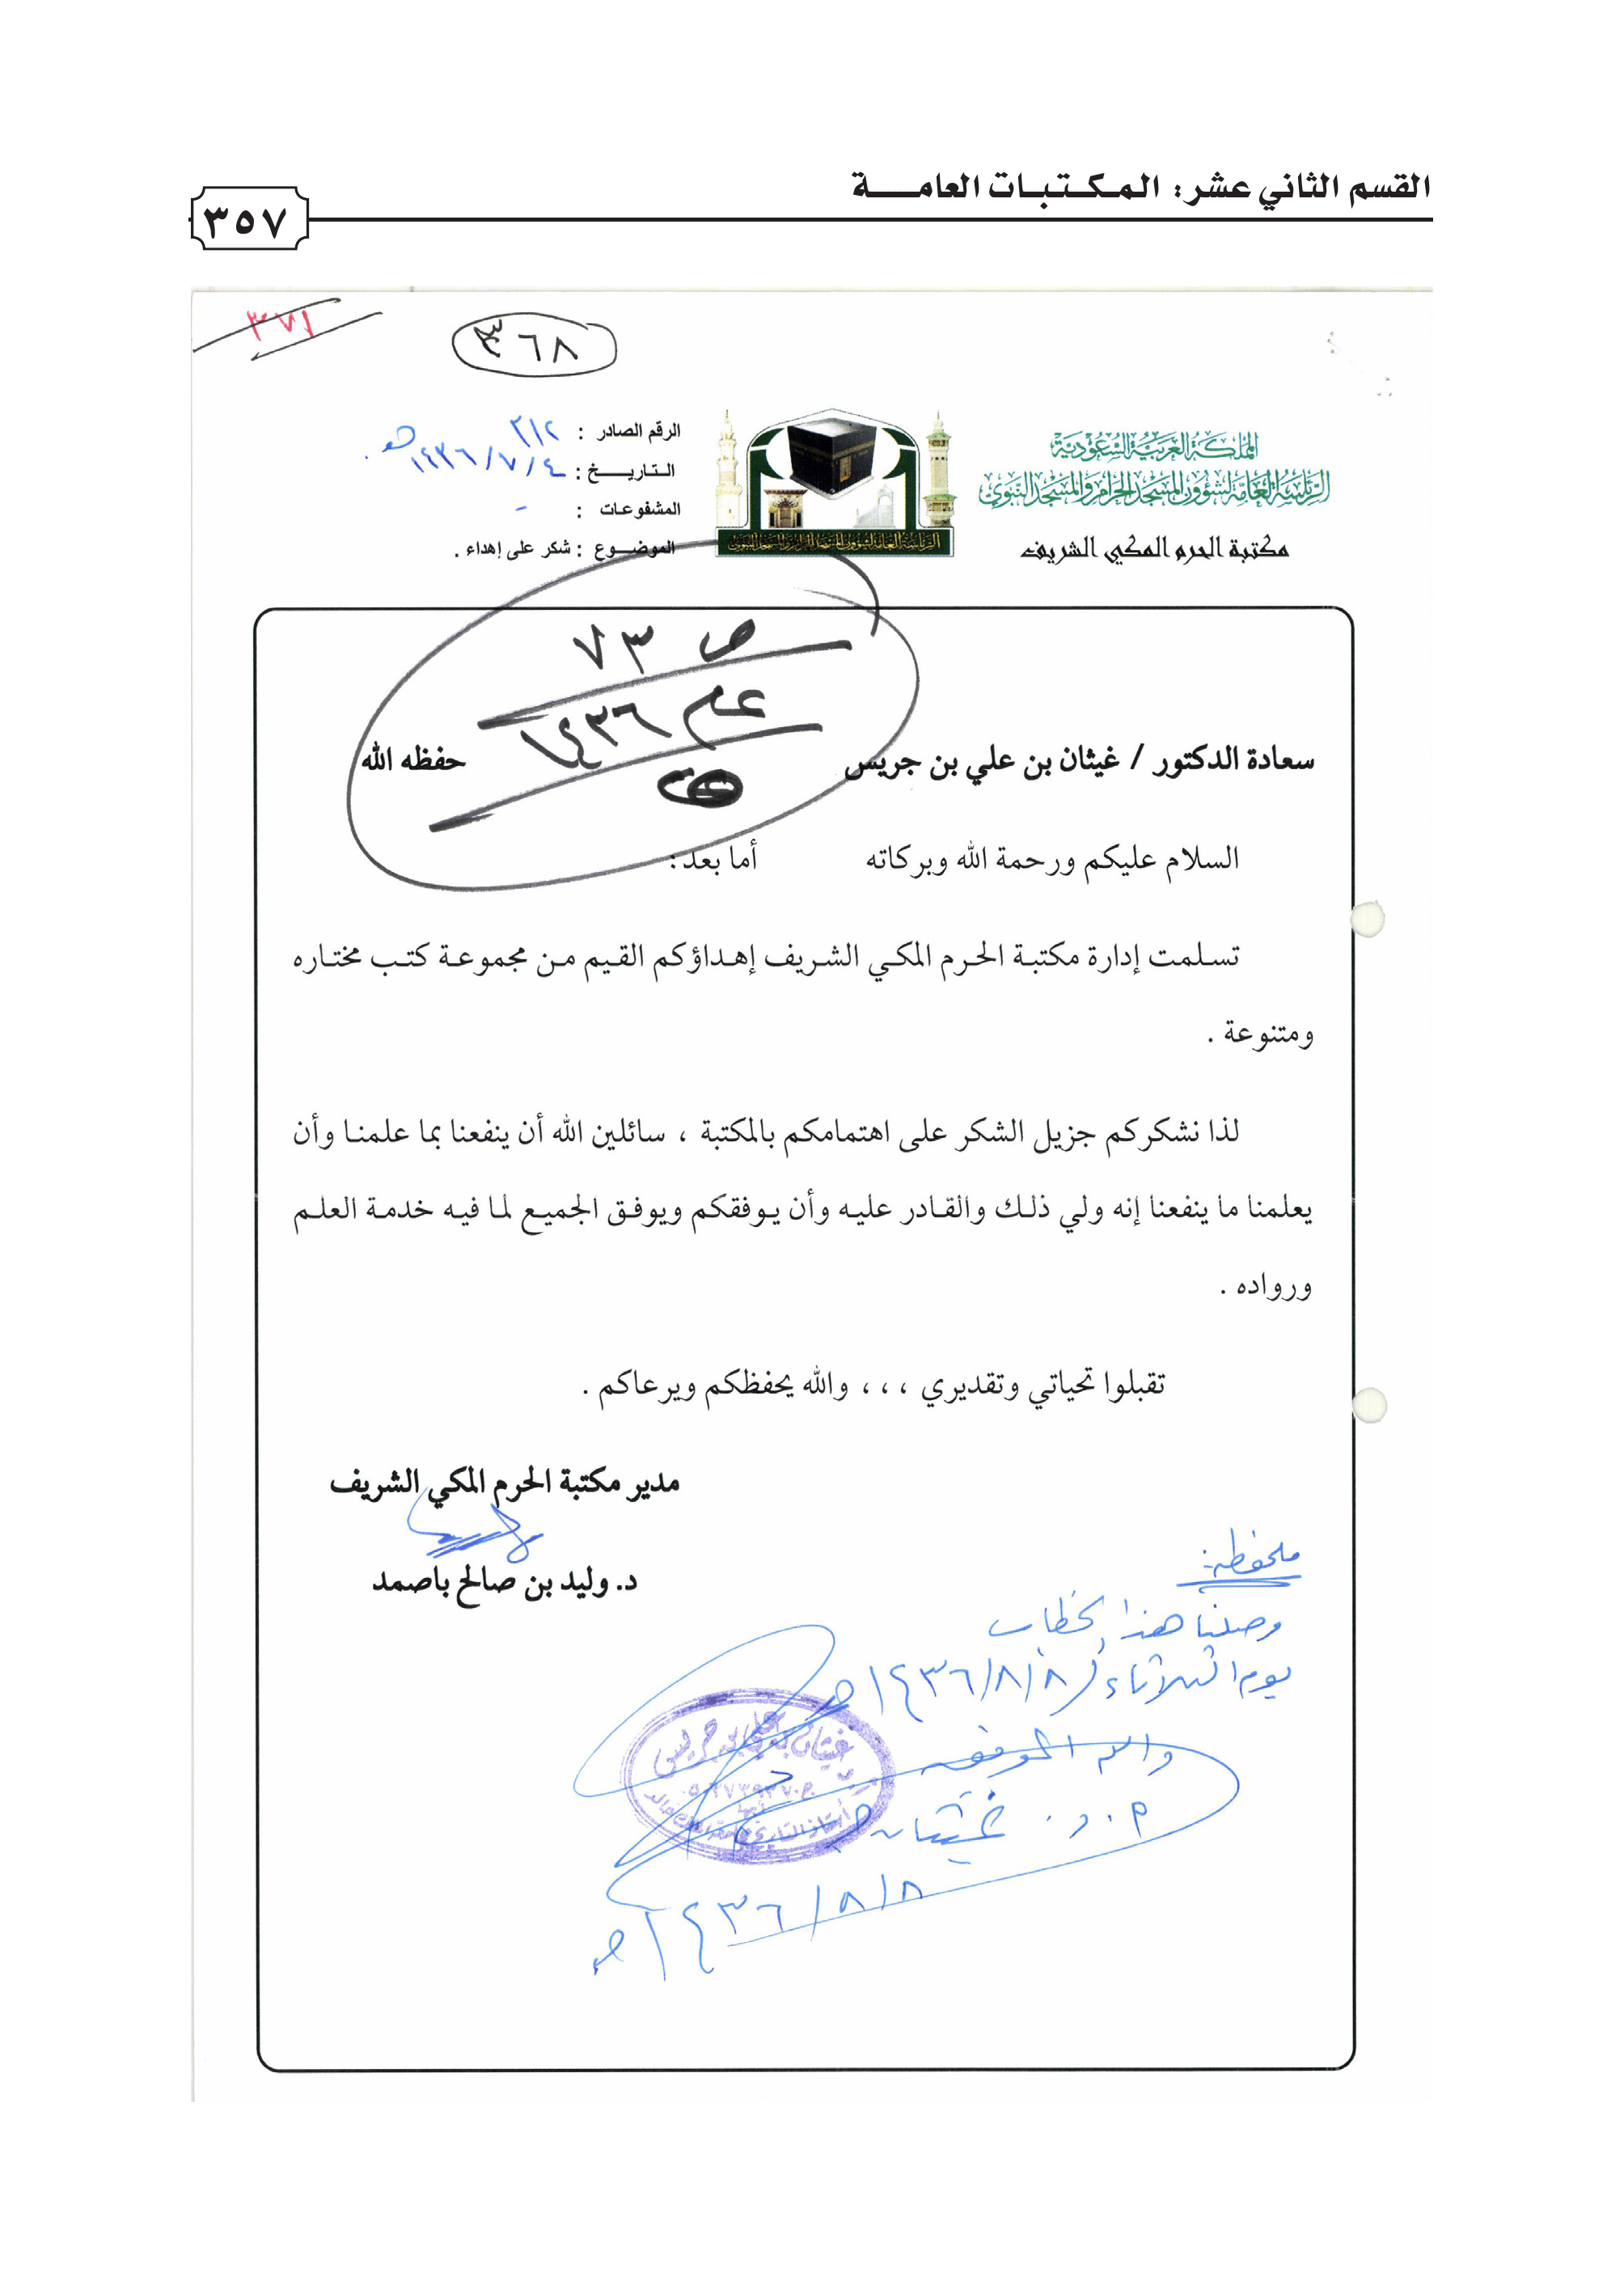 القسم الثاني عشر: المكتبات العامة
٣٥٧
٣٧١
٣٦٨
المملكة العربية السعودية
الرئاسة العامة لشؤون المسجد الحرام والمسجد النبوي
مكتبة الحرم المكي الشريف
الرئاسة العامة لشؤون المسجد الحرام والمسجد النبوي
الرقم الصادر : ٣١٢
التاريخ : ١٤٣٦/٧/٤هـ
المشفوعات : -
الموضوع : شكر على إهداء .
ص ٧٣
عام ١٤٣٦
هـ
سعادة الدكتور / غيثان بن علي بن جريس حفظه الله
السلام عليكم ورحمة الله وبركاته أما بعد :
تسلمت إدارة مكتبة الحرم المكي الشريف إهداؤكم القيم من مجموعة كتب مختاره
ومتنوعة .
لذا نشكركم جزيل الشكر على اهتمامكم بالمكتبة ، سائلين الله أن ينفعنا بما علمنا وأن
يعلمنا ما ينفعنا إنه ولي ذلك والقادر عليه وأن يوفقكم ويوفق الجميع لما فيه خدمة العلم
ورواده .
تقبلوا تحياتي وتقديري ،،، والله يحفظكم ويرعاكم .
مدير مكتبة الحرم المكي الشريف
د. وليد بن صالح باصمد
ملحوظة:
وصلنا هذا الخطاب
يوم الثلاثاء ١٤٣٦/٨/٨هـ
والله الموفق
أ.د. غيثان
غيثان بن علي بن جريس
١٤٣٦/٨/٨هـ